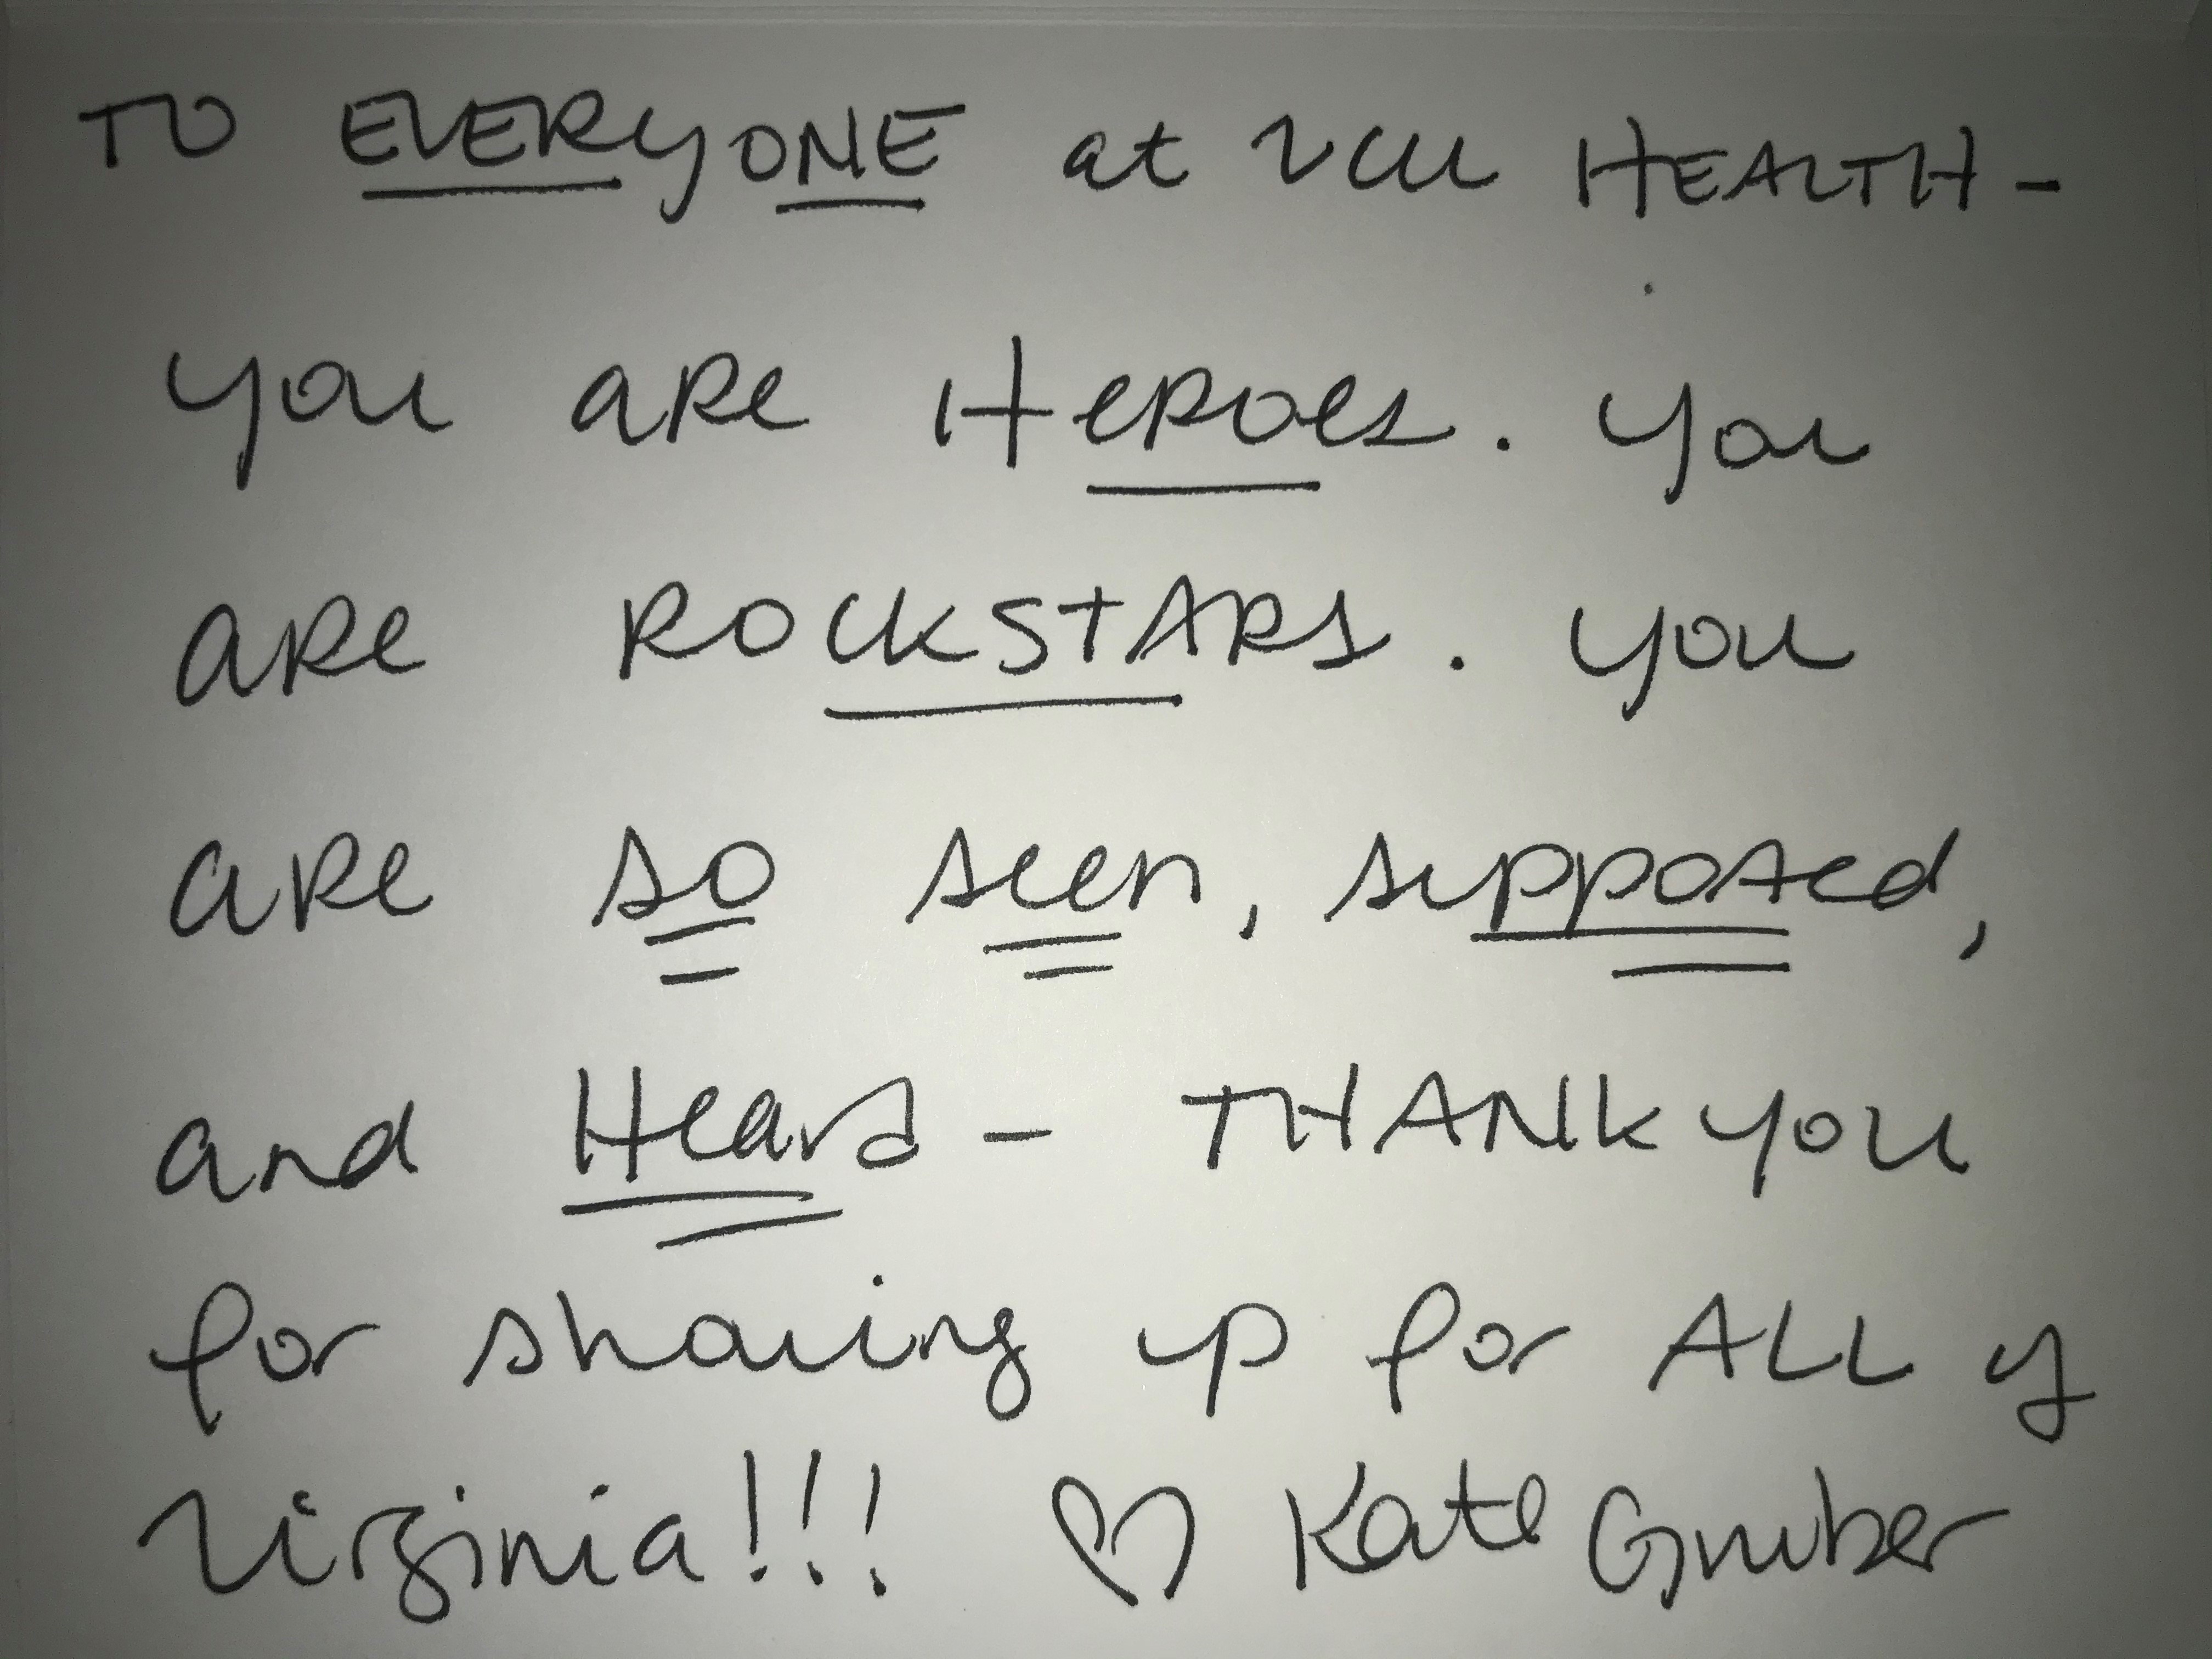 TO EVERYONE at VCU HEALTH -
you are Heroes. You
are ROCKSTARS. you
are so seen, supported,
and Heard - THANK you
for showing up for ALL of
Virginia!!! ♡ Kate Gruber